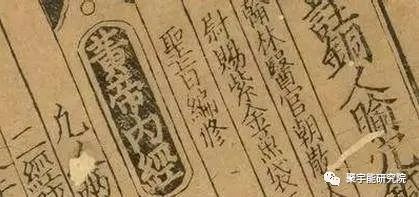 註銅人腧穴
翰林醫官朝散大
尉賜紫金魚袋
聖旨編修
黃帝內經
凡人兩
二經
聚宇能研究院